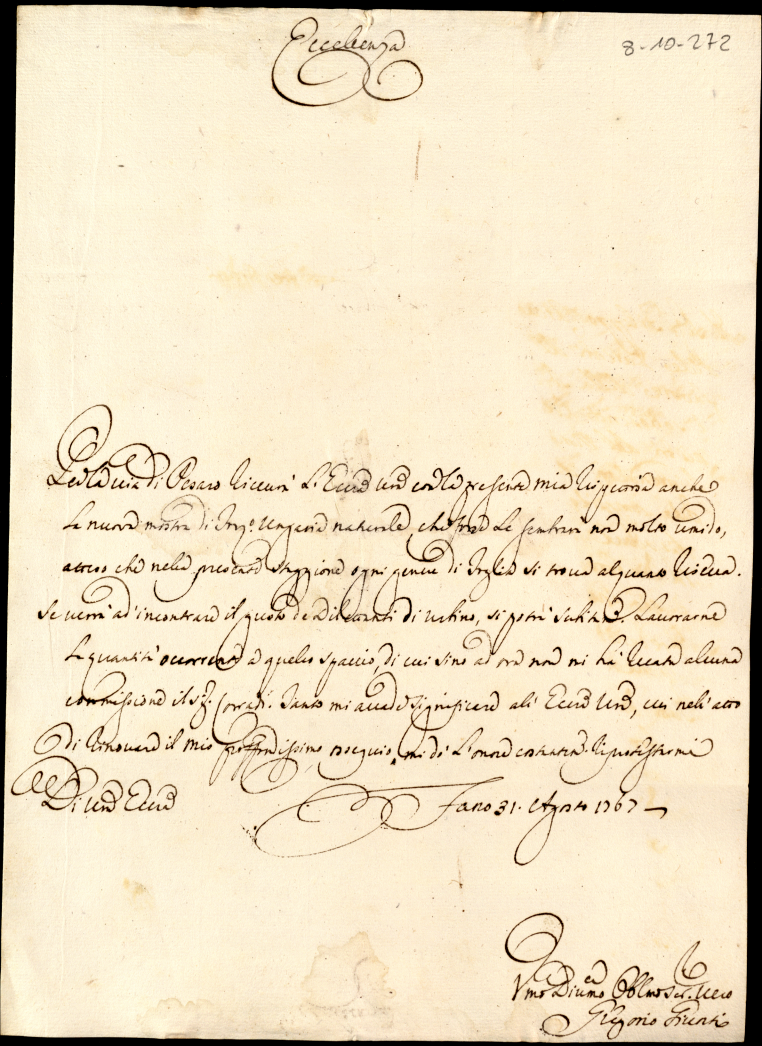 Eccellenza
8-10-272
Per la via di Pesaro riceverà L'Ecc.za V.ra con la presente mia rispettosa anche
la nuova mostra di Ung.o Ungaria naturale, che forse Le sembrerà non molto umido,
atteso che nella presente staggione ogni genere di si trova alquanto
Se verrà ad'incontrare il gusto de Dilettanti di Urbino, si potrà subito Lavorarne
la quantità occorrente a quello spaccio, di cui sino ad ora non mi hà recata alcuna
commissione il Sig.r Corradi. Tanto mi accade significare all'Ecc.za V.ra, cui nell'atto
di rinovare il mio profondissimo ossequio, mi dò L'onore
Di V.ra Ecc.za
Fano 31. Agosto 1767
Vmo Divmo ed Obblmo Ser. vero
Gregorio